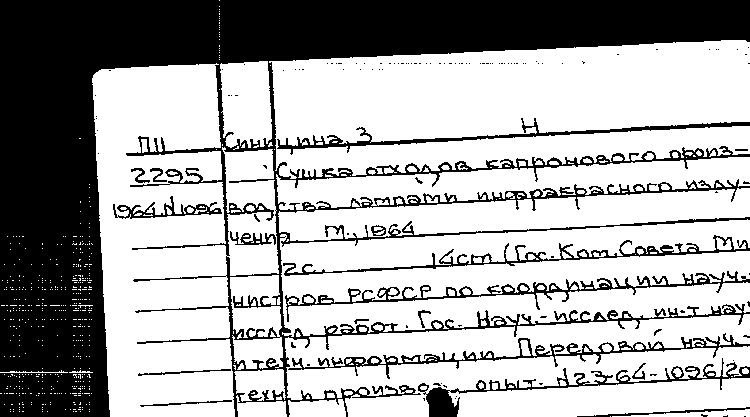 П11 Синицина, З Н
2295 Сушка отходов капронового произ=
1964.N1096 водства лампами инфракрасного излу-
чения. М., 1964
2с. 14cm (Гос. Ком. Совета Ми
нистров РСФСР по координации науч.-
исслед. работ. Гос. Науч.-исслед. ин-т науч
и техн. информации. Передовой науч.-
техн. и производ. опыт. N23-64-1096/20